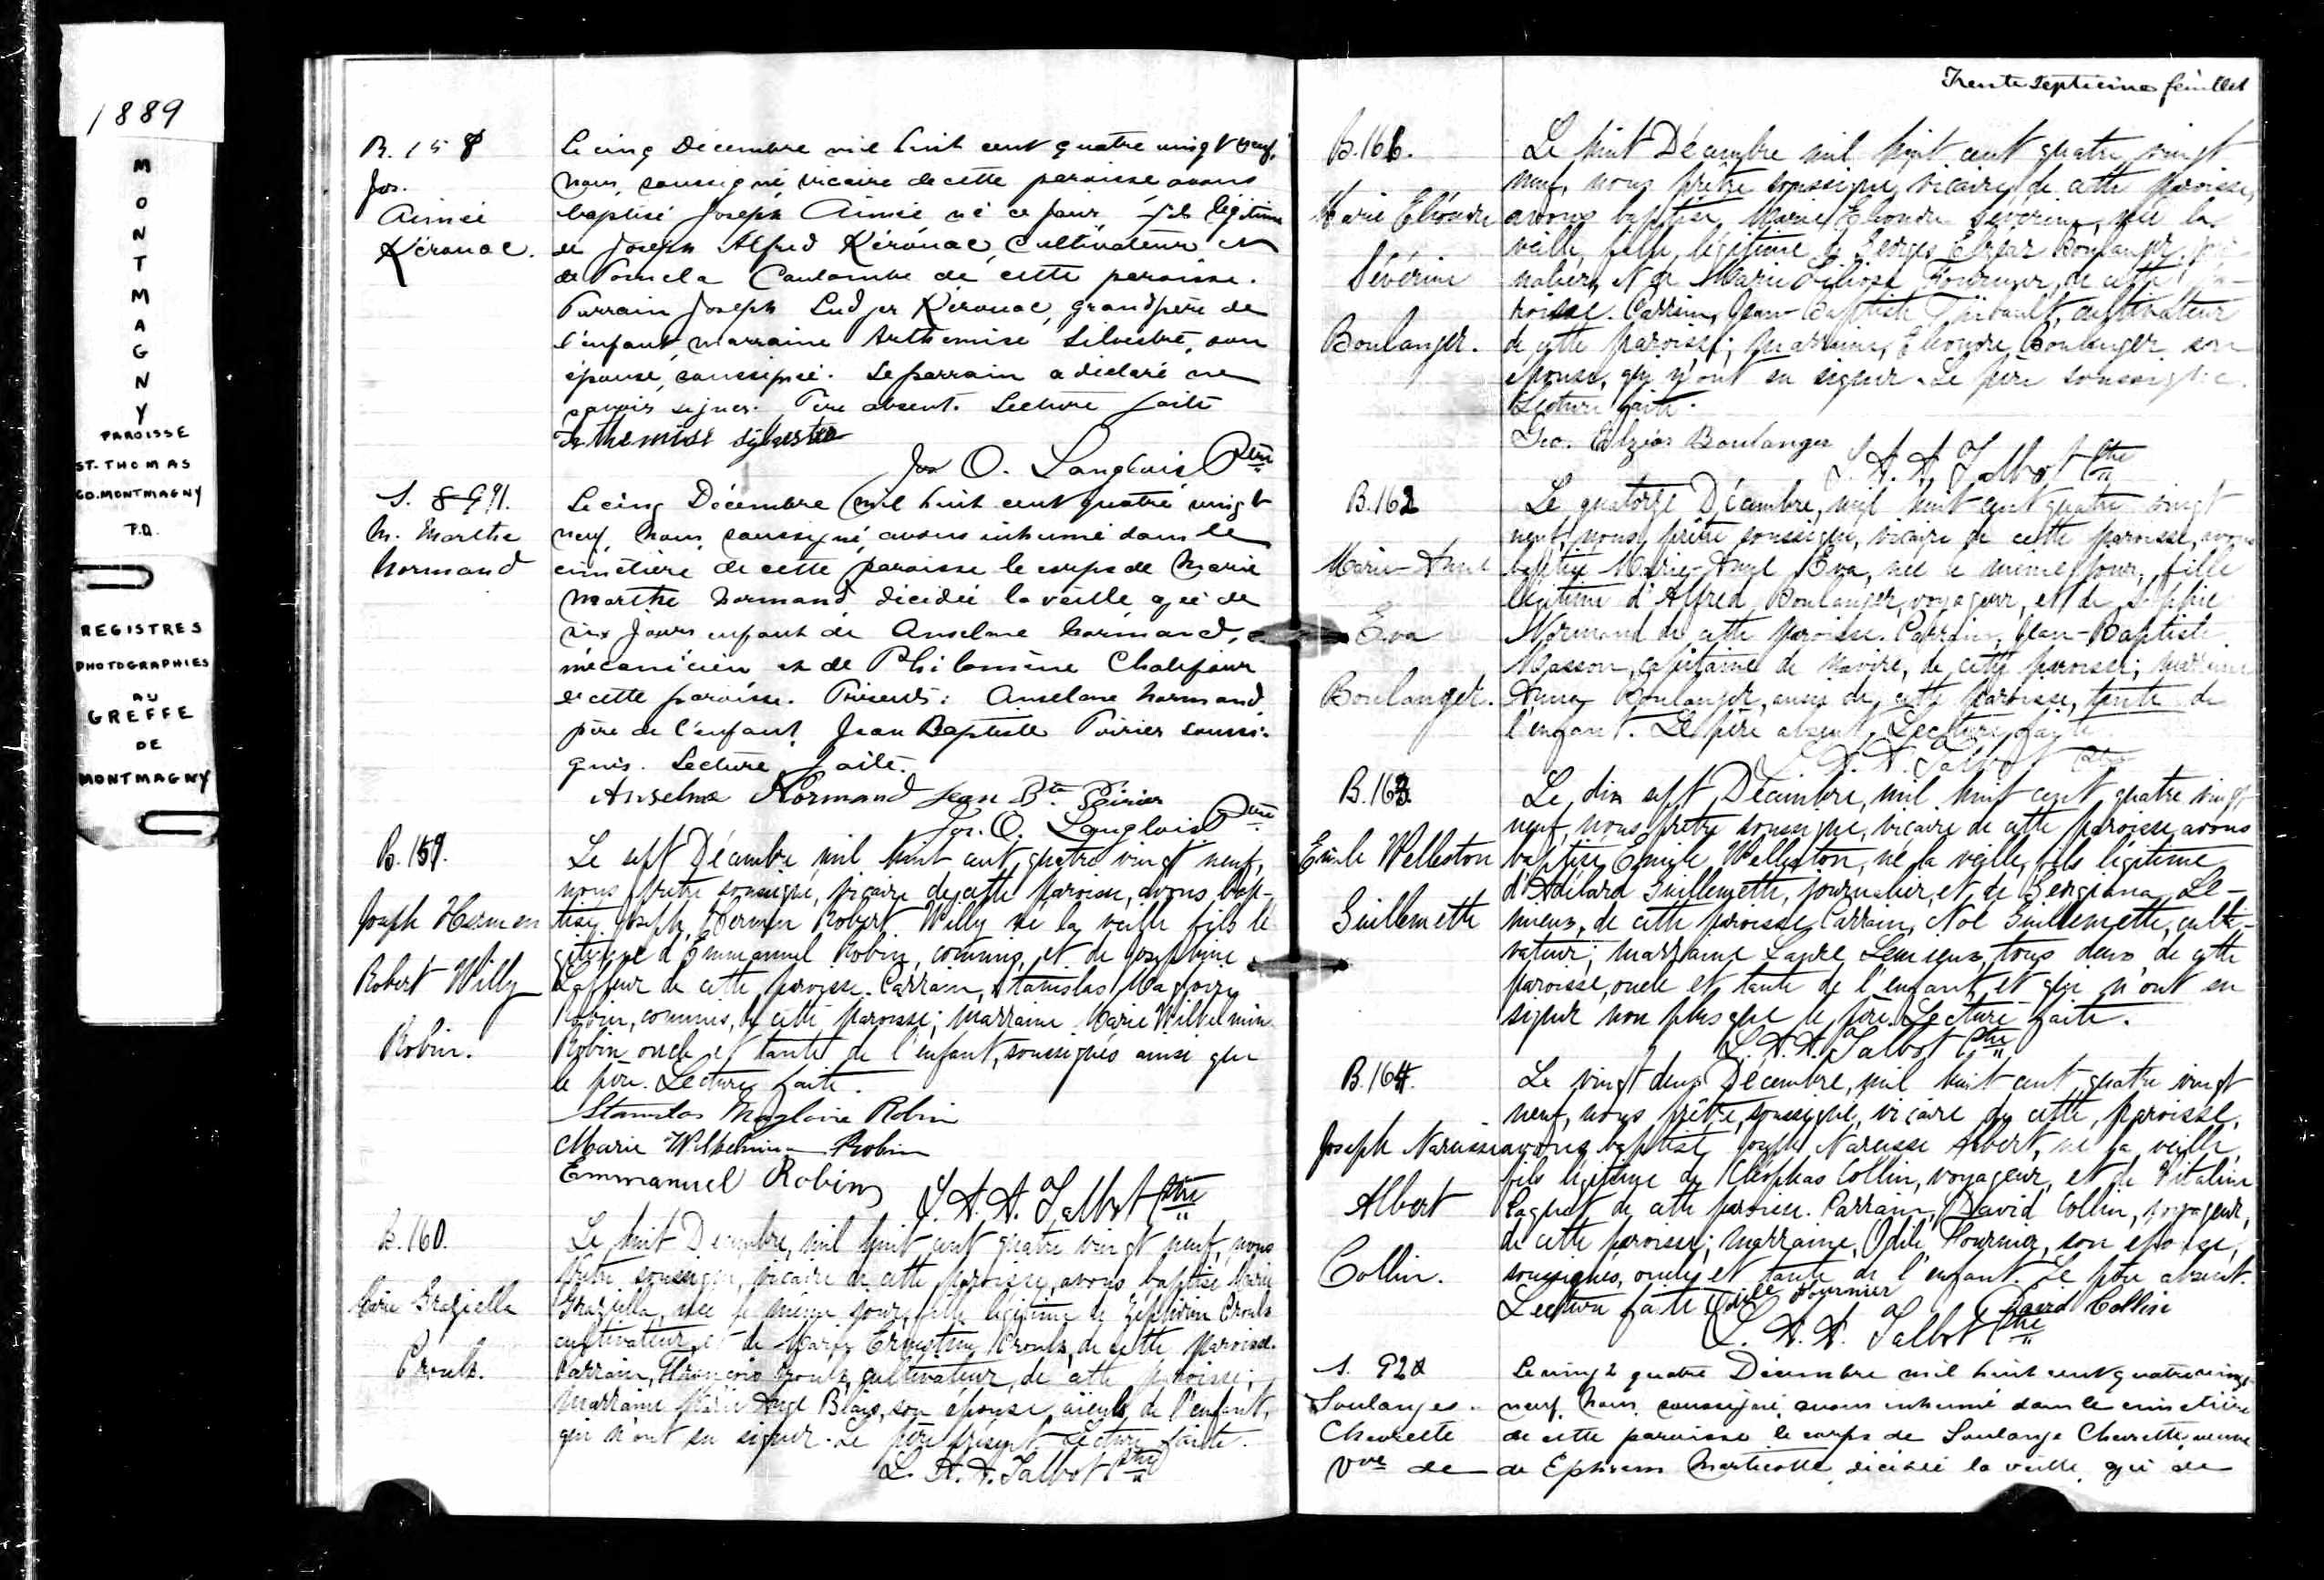 1889
MONTMAGNY
PAROISSE
ST. THOMAS
CO. MONTMAGNY
P.Q.
REGISTRES
PHOTOGRAPHIES
AU
GREFFE
DE
MONTMAGNY
B. 158
Jos.
Aimée
Kérouac.
Le cinq Décembre mil huit cent quatre vingt neuf,
nous, soussigné, vicaire de cette paroisse avons
baptisé Joseph Aimée né ce jour, fils légitime
de Joseph Alfred Kérouac, cultivateur et
de Pamela Coulombe de cette paroisse.
Parrain Joseph Ludger Kérouac, grandpère de
l'enfant, marraine Arthemise Silvestre, son
épouse, soussignée. Le parrain a déclaré ne
savoir signer. Père absent. Lecture faite
Arthemise Sylvestre
Jos O. Langlois Ptre
S. 91.
M. Marthe
Normand
Le cinq Décembre mil huit cent quatre vingt
neuf, nous, soussigné, avons inhumé dans le
cimetière de cette paroisse le corps de Marie
Marthe Normand, décidée la veille, agée de
six jours enfant de Anselme Normand,
mécanicien et de Philomène Chalifour
de cette paroisse. Présents: Anselme Normand,
père de l'enfant, Jean Baptiste Poirier soussi-
gnés. Lecture faite.
Anselme Normand Jean Bte Poirier
Jos. O. Langlois Ptre
B. 159.
Joseph Hermen
Robert Willy
Robin.
Le sept Décembre, mil huit cent quatre vingt neuf,
nous prêtre soussigné, vicaire de cette paroisse, avons bap-
tisé Joseph, Hermen Robert Willy né la veille fils lé-
gitime d'Emmanuel Robin, commis, et de Joséphine
de cette paroisse. Parrain, Stanislas Magloire
Robin, commis, de cette paroisse; marraine Marie Wilhelmin
Robin oncle et tante de l'enfant, soussignés ainsi que
le père. Lecture faite.
Stanislas Magloire Robin
Marie Wilhelmina Robin
Emmanuel Robin
L. A. A. Talbot Ptre
B. 160.
Marie Graziella
Proulx.
Le huit Décembre, mil huit cent quatre vingt neuf, nous
prêtre soussigné, vicaire de cette paroisse, avons baptisé Marie
Graziella, née le même jour, fille légitime de Zéphirin Proulx
cultivateur, et de Marie Ernestine Proulx, de cette paroisse.
Parrain, François Proulx, cultivateur, de cette paroisse;
marraine Marie Ange Blais, son épouse, aïeuls de l'enfant,
qui n'ont su signer. Le père présent. Lecture faite.
L. A. A. Talbot Ptre
Trente septième feuillet
B. 161.
Marie Elhondre
Séverine
Boulanger.
Le huit Décembre mil huit cent quatre vingt
neuf, nous prêtre soussigné, vicaire, de cette paroisse,
avons baptisé, Marie Elhondre Séverine, née la
veille, fille légitime de Georges Elzéar Boulanger, jour-
nalier, et de Marie Fournier, de cette pa-
roisse. Parrain, Jean-Baptiste Thibault, cultivateur
de cette paroisse; marraine, Elhondre Boulanger son
épouse, qui n'ont su signer. Le père soussigné.
Lecture faite.
Geo. Elzéar Boulanger
L. A. A. Talbot Ptre
B. 162
Marie-Ange
Eva
Boulanger.
Le quatorze Décembre, mil huit cent quatre vingt
neuf, nous prêtre soussigné, vicaire de cette paroisse, avons
baptisé Marie-Ange Eva, née le même jour, fille
légitime d'Alfred Boulanger, voyageur, et de Sophie
Normand de cette paroisse. Parrain, Jean-Baptiste
Masson, capitaine de navire, de cette paroisse; marraine
Anna Boulanger, aussi de cette paroisse, tante de
l'enfant. Le père absent. Lecture faite.
L. A. A. Talbot Ptre
B. 163
Emile Welleston
Guillemette
Le dix sept Décembre, mil huit cent quatre vingt
neuf, nous prêtre soussigné, vicaire de cette paroisse, avons
baptisé Emile Welleston, né la veille, fils légitime
d'Adélard Guillemette, journalier, et de Georgiana Le-
mieux, de cette paroisse. Parrain, Noé Guillemette, culti-
vateur; marraine Laure Lemieux, tous deux de cette
paroisse, oncle et tante de l'enfant, et qui n'ont su
signer non plus que le père. Lecture faite.
L. A. A. Talbot Ptre
B. 164.
Joseph Narcisse
Albert
Collin.
Le vingt deux Décembre, mil huit cent quatre vingt
neuf, nous prêtre, soussigné, vicaire de cette paroisse,
avons baptisé Joseph Narcisse Albert, né la veille,
fils légitime de Cléophas Collin, voyageur, et de Vitaline
Paquet de cette paroisse. Parrain, David Collin, voyageur,
de cette paroisse; marraine, Odile Fournier, son épouse,
soussignés, oncle et tante de l'enfant. Le père absent.
Lecture faite Odile Fournier
David Collin
L. A. A. Talbot Ptre
S. 92
Soulanges
Chevrette
Vve de
Le vingt quatre Décembre mil huit cent quatre vingt
neuf, nous soussigné, avons inhumé dans le cimetière
de cette paroisse le corps de Soulange Chevrette, veuve
de Ephrem Marticotte, décidée la veille, agée de